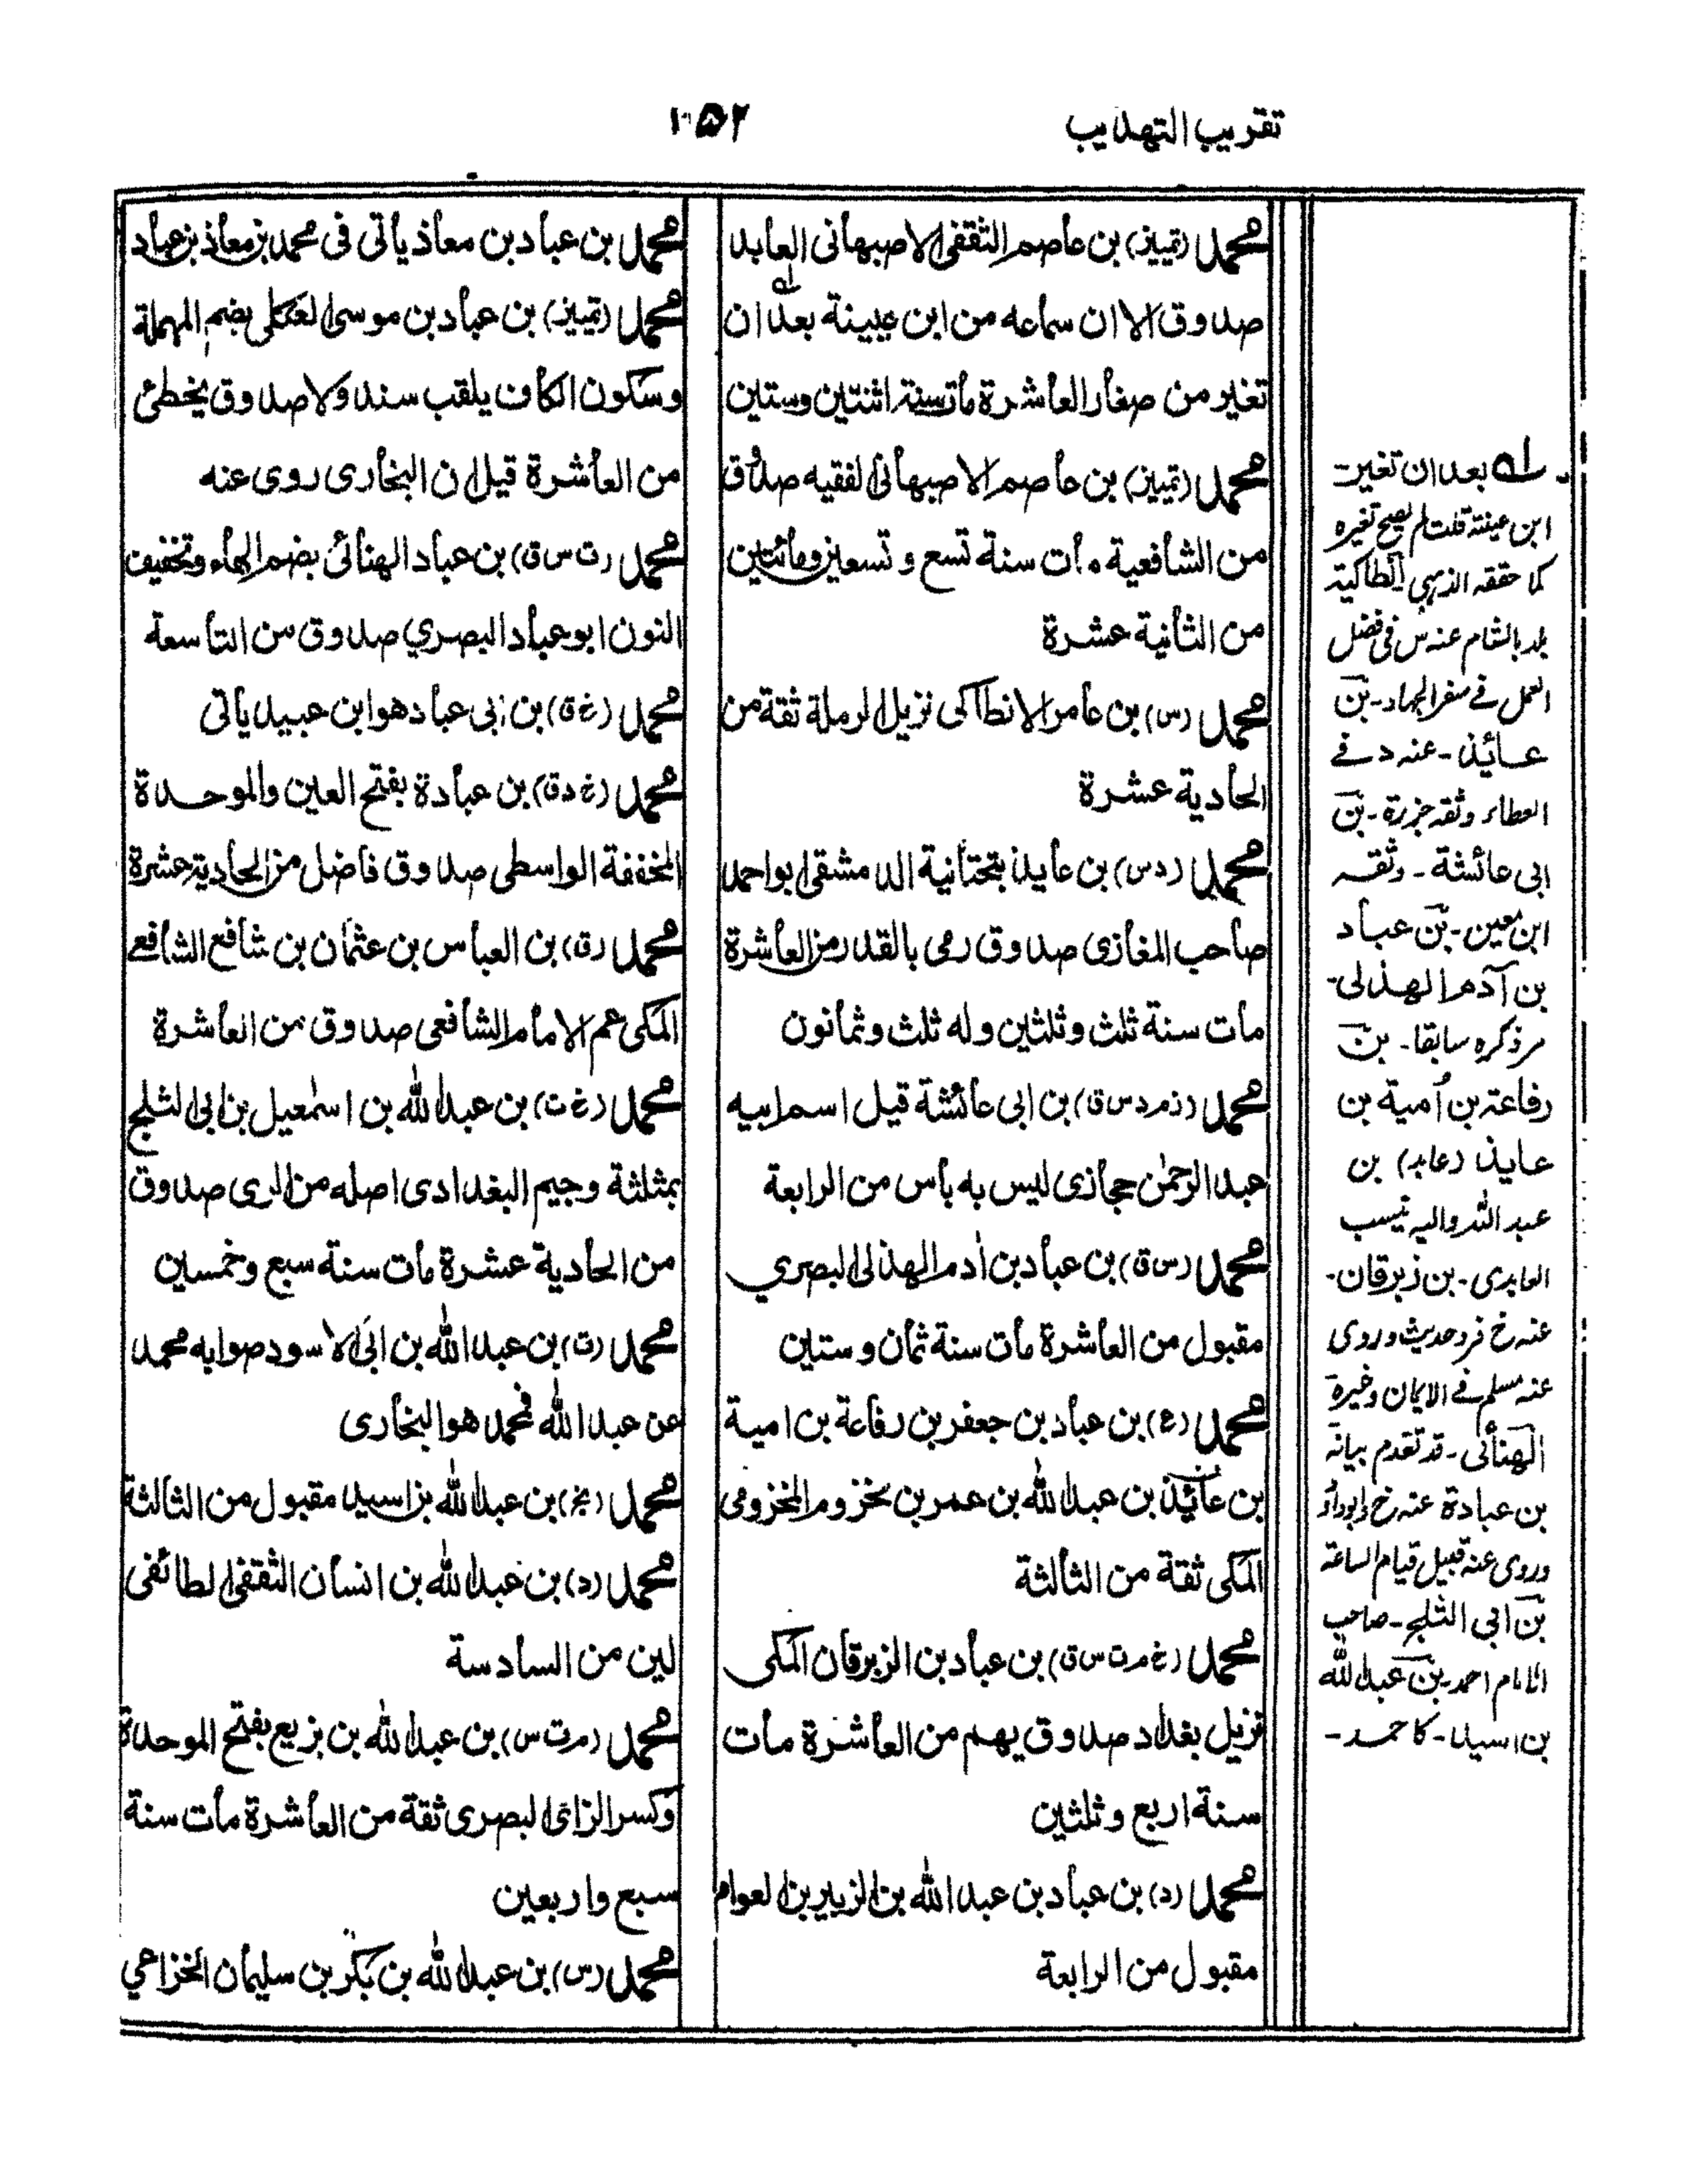 تقريب التهذيب
محمد (تمييز) بن عاصم الثقفى الاصبهانى العابد
صدوق الا ان سماعه من ابن عيينة بعد ان
تغير من صغار العاشرة مات سنة اثنتين وستين
محمد (تمييز) بن عاصم الاصبهانى الفقيه صدوق
من الشافعية مات سنة تسع وتسعين ومائتين
من الثانية عشرة
محمد (س) بن عامر الانطاكى نزيل الرملة ثقة من
الحادية عشرة
محمد (د س) بن عايذ بتحتانية الدمشقى ابو احمد
صاحب المغازى صدوق رمى بالقدر من العاشرة
مات سنة ثلث وثلثين وله ثلث وثمانون
محمد (ز م د س ق) بن ابى عائشة قيل اسم ابيه
عبد الرحمٰن حجازى ليس به بأس من الرابعة
محمد (س ق) بن عباد بن اٰدم الهذلى البصري
مقبول من العاشرة مات سنة ثمان وستين
محمد (ع) بن عباد بن جعفر بن رفاعة بن امية
بن عائيذ بن عبد الله بن عمر بن مخزوم المخزومى
المكى ثقة من الثالثة
محمد (خ م ت س ق) بن عباد بن الزبرقان المكى
نزيل بغداد صدوق يهم من العاشرة مات
سنة اربع وثلثين
محمد (د) بن عباد بن عبد الله بن الزبير بن العوام
مقبول من الرابعة
محمد بن عباد بن معاذ يأتى فى محمد بن معاذ بن عباد
محمد (تمييز) بن عباد بن موسى العكلى بضم المهملة
وسكون الكاف يلقب سندولا صدوق يخطئ
من العاشرة قيل ان البخارى روى عنه
محمد (ت س ق) بن عباد الهنائى بضم الهاء وتخفيف
النون ابو عباد البصري صدوق من التاسعة
محمد (خ ق) بن ابى عباد هو ابن عبيد ياتى
محمد (خ د ق) بن عبادة بفتح العين والموحدة
المخففة الواسطى صدوق فاضل من الحادية عشرة
محمد (ق) بن العباس بن عثمان بن شافع الشافعے
المكى عم الامام الشافعى صدوق من العاشرة
محمد (خ ت) بن عبد الله بن اسمٰعيل بن ابى الثلج
بمثلثة وجيم البغدادى اصله من الرى صدوق
من الحادية عشرة مات سنة سبع وخمسين
محمد (ت) بن عبد الله بن ابى الاسود صوابه محمد
عن عبد الله فمحمد هو البخارى
محمد (بخ) بن عبد الله بن اسيد مقبول من الثالثة
محمد (د) بن عبد الله بن انسان الثقفى الطائفى
لين من السادسة
محمد (م ت س) بن عبد الله بن بزيع بفتح الموحدة
وكسر الزاى البصرى ثقة من العاشرة مات سنة
سبع واربعين
محمد (س) بن عبد الله بن بكر بن سليمان الخزاعي
بعد ان تغير
ابن عينة قلت لم يصح تغيره
كما حققه الذهبي انطاكية
بلد بالشام عنه س فى فضل
العمل فے سفر الجهاد - بن
عائيذ - عنه د فے
العطاء وثقه جزرة - بن
ابى عائشة - وثقه
ابن معين - بن عباد
بن آدم الهذلى -
مر ذكره سابقا - بن
رفاعة بن أمية بن
عايذ (عابد) بن
عبد الله واليه ينسب
العابدى - بن زبرقان -
عنه خ فرد حديث وروى
عنه مسلم فے الايمان وغيره
الهنائى - قد تقدم بيانه
بن عبادة عنه خ وابوداؤد
وروى عنه قبيل قيام الساعة
بن ابى الثلج - صاحب
الامام احمد - بن عبد الله
بن اسيد - كاحمد -